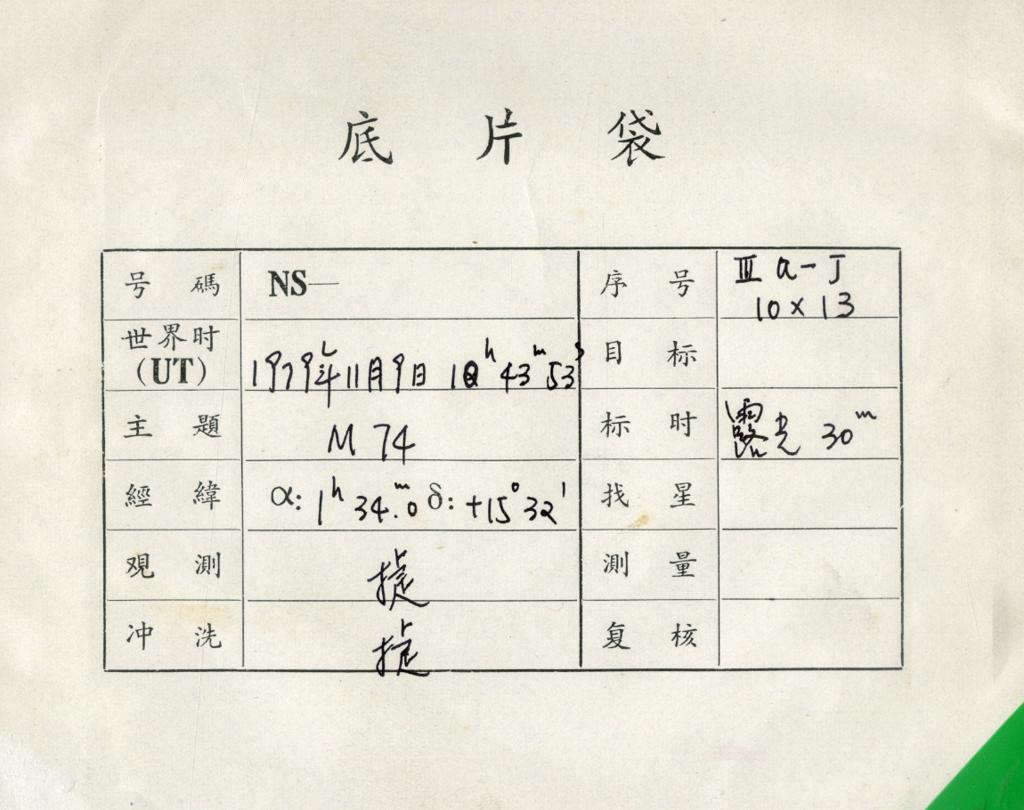 底 片 袋
号 碼 NS— 序 号 Ⅲ a-J
10×13
世界时
(UT) 1979年11月9日 h 43m 53s 目 标
主 題 M 74 标 时 露光 30m
經 緯 α: 1h 34.m0 δ: +15°32' 找 星
观 測 捷 測 量
冲 洗 捷 复 核